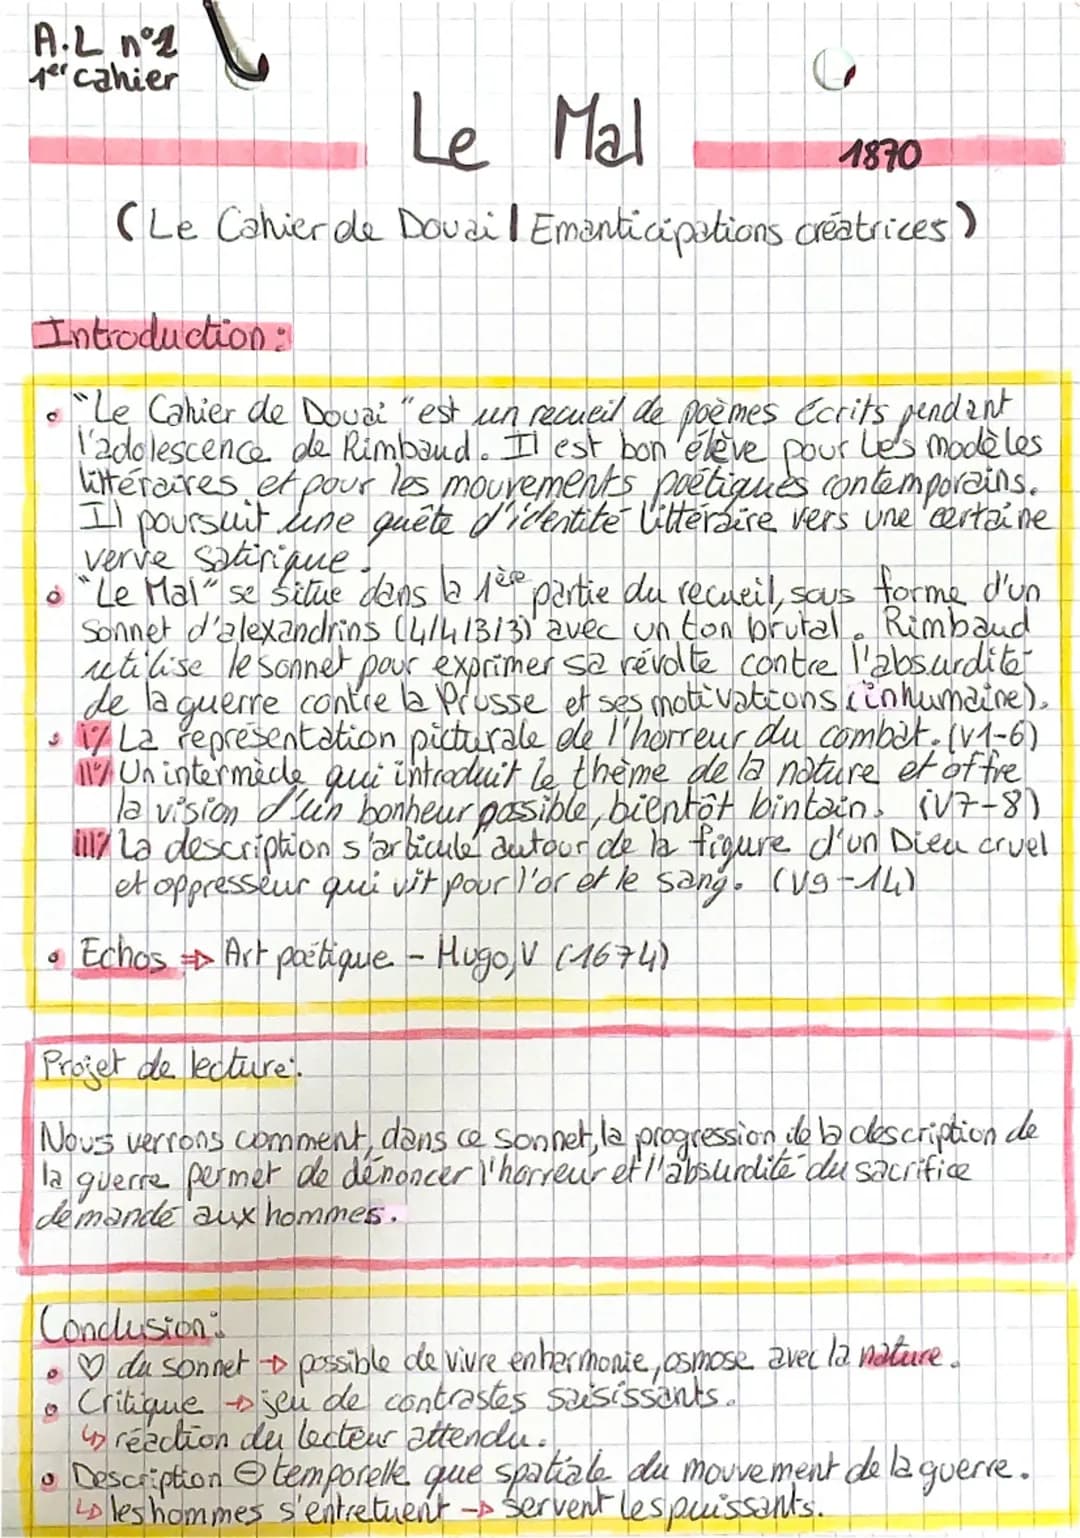 A.L n°1
1er cahier
Le Mal
1870
(Le Cahier de Douai | Emanticipations créatrices)
Introduction:
"Le Cahier de Douai" est un recueil de poèmes écrits pendant
l'adolescence de Rimbaud. Il est bon élève pour les modèles
littéraires et pour les mouvements poétiques contemporains.
Il poursuit une quête d'identité littéraire vers une certaine
verve satirique.
"Le Mal" se situe dans la 1ère partie du recueil, sous forme d'un
sonnet d'alexandrins (4/4/3/3) avec un ton brutal. Rimbaud
utilise le sonnet pour exprimer sa révolte contre l'absurdité
de la guerre contre la Prusse et ses motivations (inhumaine).
i°/ La représentation picturale de l'horreur du combat. (v1-6)
ii°/ Un intermède qui introduit le thème de la nature et offre
la vision d'un bonheur possible, bientôt lointain. (v7-8)
iii°/ La description s'articule autour de la figure d'un Dieu cruel
et oppresseur qui vit pour l'or et le sang. (v9-14)
Echos ⇒ Art poétique - Hugo, V (1674)
Projet de lecture:
Nous verrons comment, dans ce sonnet, la progression de la description de
la guerre permet de dénoncer l'horreur et l'absurdité du sacrifice
demandé aux hommes.
Conclusion:
♡ du sonnet → possible de vivre en harmonie, osmose avec la nature.
Critique → jeu de contrastes saisissants.
↳ réaction du lecteur attendu.
Description ⊖ temporelle que spatiale du mouvement de la guerre.
↳ les hommes s'entretuent → servent les puissants.